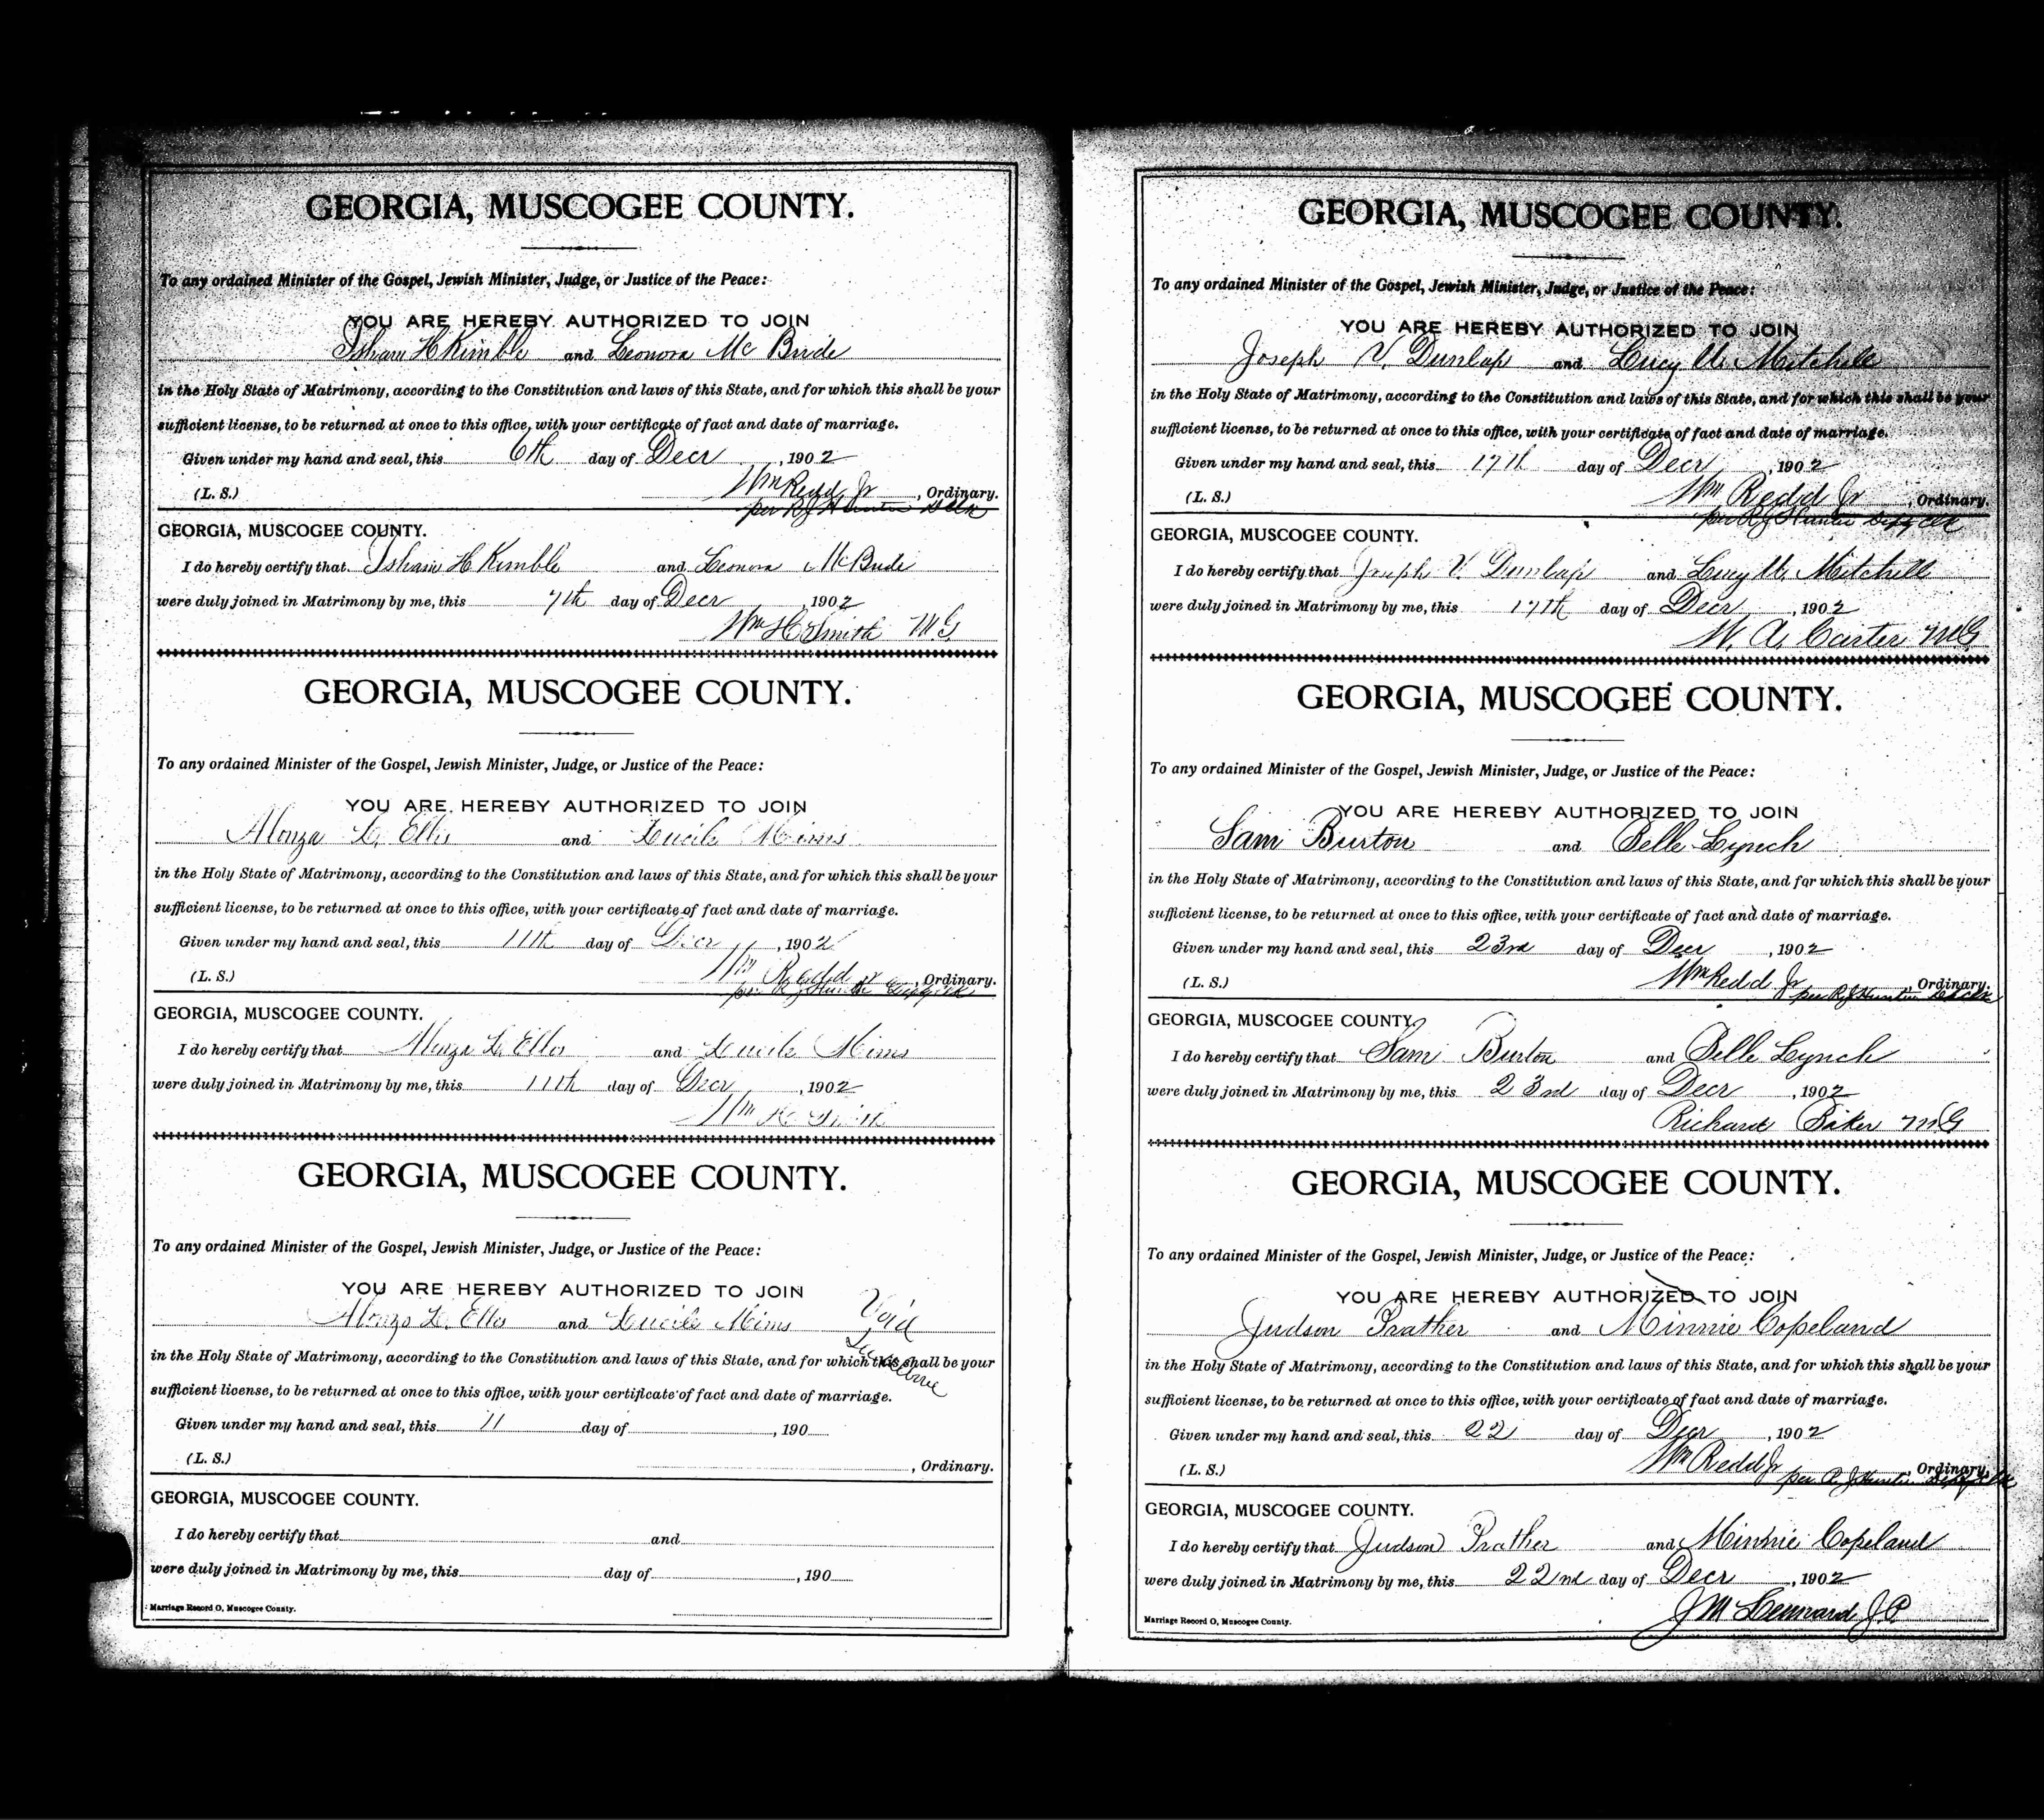 GEORGIA, MUSCOGEE COUNTY.
To any ordained Minister of the Gospel, Jewish Minister, Judge, or Justice of the Peace:
YOU ARE HEREBY AUTHORIZED TO JOIN
Isham H Kimble and Leonora McBride
in the Holy State of Matrimony, according to the Constitution and laws of this State, and for which this shall be your
sufficient license, to be returned at once to this office, with your certificate of fact and date of marriage.
Given under my hand and seal, this 6th day of Decr, 1902
(L. S.) Wm Redd Jr, Ordinary.
per R J Hunter
GEORGIA, MUSCOGEE COUNTY.
I do hereby certify that Isham H Kimble and Leonora McBride
were duly joined in Matrimony by me, this 7th day of Decr 1902
Wm H Smith M.G.
GEORGIA, MUSCOGEE COUNTY.
To any ordained Minister of the Gospel, Jewish Minister, Judge, or Justice of the Peace:
YOU ARE HEREBY AUTHORIZED TO JOIN
Alonza L. Ellis and Lucile Mims
in the Holy State of Matrimony, according to the Constitution and laws of this State, and for which this shall be your
sufficient license, to be returned at once to this office, with your certificate of fact and date of marriage.
Given under my hand and seal, this 11th day of Decr, 1902
(L. S.) Wm Redd Jr, Ordinary.
per R J Hunter
GEORGIA, MUSCOGEE COUNTY.
I do hereby certify that Alonza L. Ellis and Lucile Mims
were duly joined in Matrimony by me, this 11th day of Decr, 1902
Wm H Smith
GEORGIA, MUSCOGEE COUNTY.
To any ordained Minister of the Gospel, Jewish Minister, Judge, or Justice of the Peace:
YOU ARE HEREBY AUTHORIZED TO JOIN
Alonzo L. Ellis and Lucile Mims Void
in the Holy State of Matrimony, according to the Constitution and laws of this State, and for which this shall be your
sufficient license, to be returned at once to this office, with your certificate of fact and date of marriage.
Given under my hand and seal, this 11 day of , 190
(L. S.) , Ordinary.
GEORGIA, MUSCOGEE COUNTY.
I do hereby certify that and
were duly joined in Matrimony by me, this day of , 190
Marriage Record O, Muscogee County.
GEORGIA, MUSCOGEE COUNTY.
To any ordained Minister of the Gospel, Jewish Minister, Judge, or Justice of the Peace:
YOU ARE HEREBY AUTHORIZED TO JOIN
Joseph V. Dunlap and Lucy U. Mitchell
in the Holy State of Matrimony, according to the Constitution and laws of this State, and for which this shall be your
sufficient license, to be returned at once to this office, with your certificate of fact and date of marriage.
Given under my hand and seal, this 17th day of Decr, 1902
(L. S.) Wm Redd Jr, Ordinary.
per R J Hunter Depy Clk
GEORGIA, MUSCOGEE COUNTY.
I do hereby certify that Joseph V. Dunlap and Lucy U. Mitchell
were duly joined in Matrimony by me, this 17th day of Decr, 1902
W. A. Carter MG
GEORGIA, MUSCOGEE COUNTY.
To any ordained Minister of the Gospel, Jewish Minister, Judge, or Justice of the Peace:
YOU ARE HEREBY AUTHORIZED TO JOIN
Sam Burton and Belle Lynch
in the Holy State of Matrimony, according to the Constitution and laws of this State, and for which this shall be your
sufficient license, to be returned at once to this office, with your certificate of fact and date of marriage.
Given under my hand and seal, this 23rd day of Decr, 1902
(L. S.) Wm Redd Jr, Ordinary.
per R J Hunter
GEORGIA, MUSCOGEE COUNTY.
I do hereby certify that Sam Burton and Belle Lynch
were duly joined in Matrimony by me, this 23rd day of Decr, 1902
Richard Baker MG
GEORGIA, MUSCOGEE COUNTY.
To any ordained Minister of the Gospel, Jewish Minister, Judge, or Justice of the Peace:
YOU ARE HEREBY AUTHORIZED TO JOIN
Judson Prather and Minnie Copeland
in the Holy State of Matrimony, according to the Constitution and laws of this State, and for which this shall be your
sufficient license, to be returned at once to this office, with your certificate of fact and date of marriage.
Given under my hand and seal, this 22 day of Decr, 1902
(L. S.) Wm Redd Jr, Ordinary.
per R J Hunter Depy Clk
GEORGIA, MUSCOGEE COUNTY.
I do hereby certify that Judson Prather and Minnie Copeland
were duly joined in Matrimony by me, this 22nd day of Decr, 1902
J M Lennard J.P.
Marriage Record O, Muscogee County.